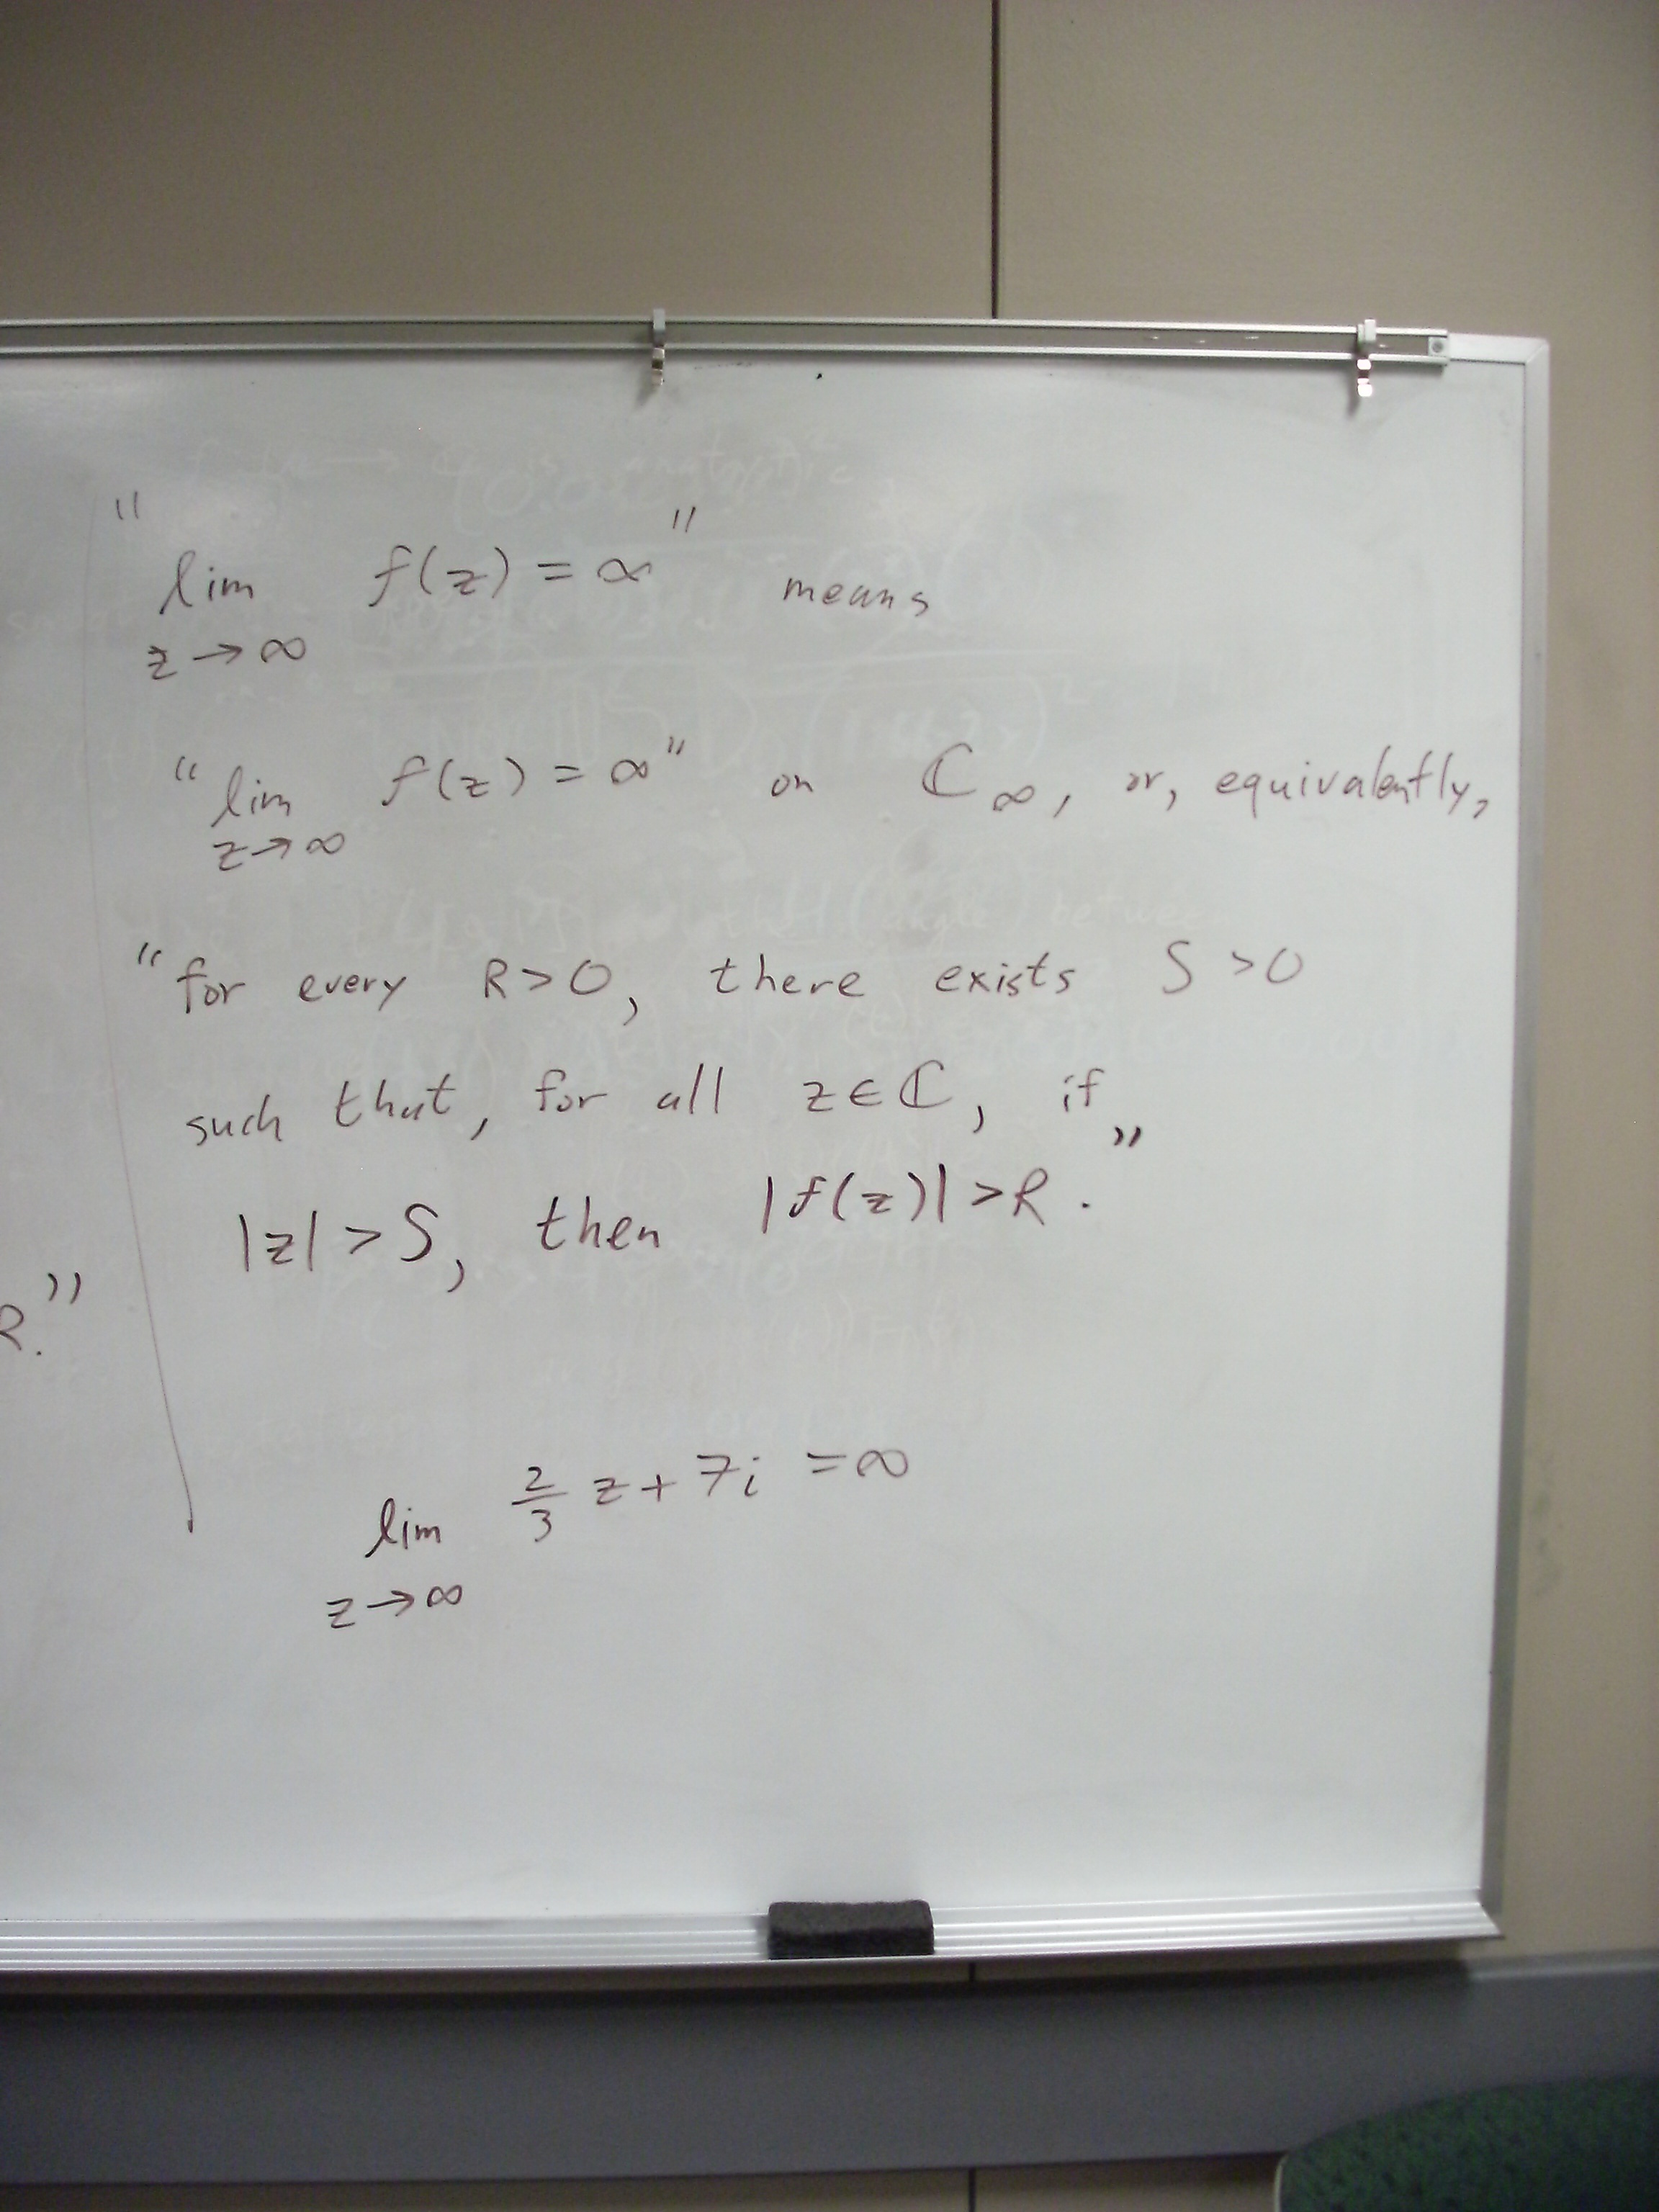 "lim f(z) = ∞" means
z → ∞
"lim f(z) = ∞" on ℂ∞, or, equivalently,
z → ∞
"for every R > 0, there exists S > 0
such that, for all z ∈ ℂ, if
|z| > S, then |f(z)| > R."
R."
lim 2/3 z + 7i = ∞
z → ∞